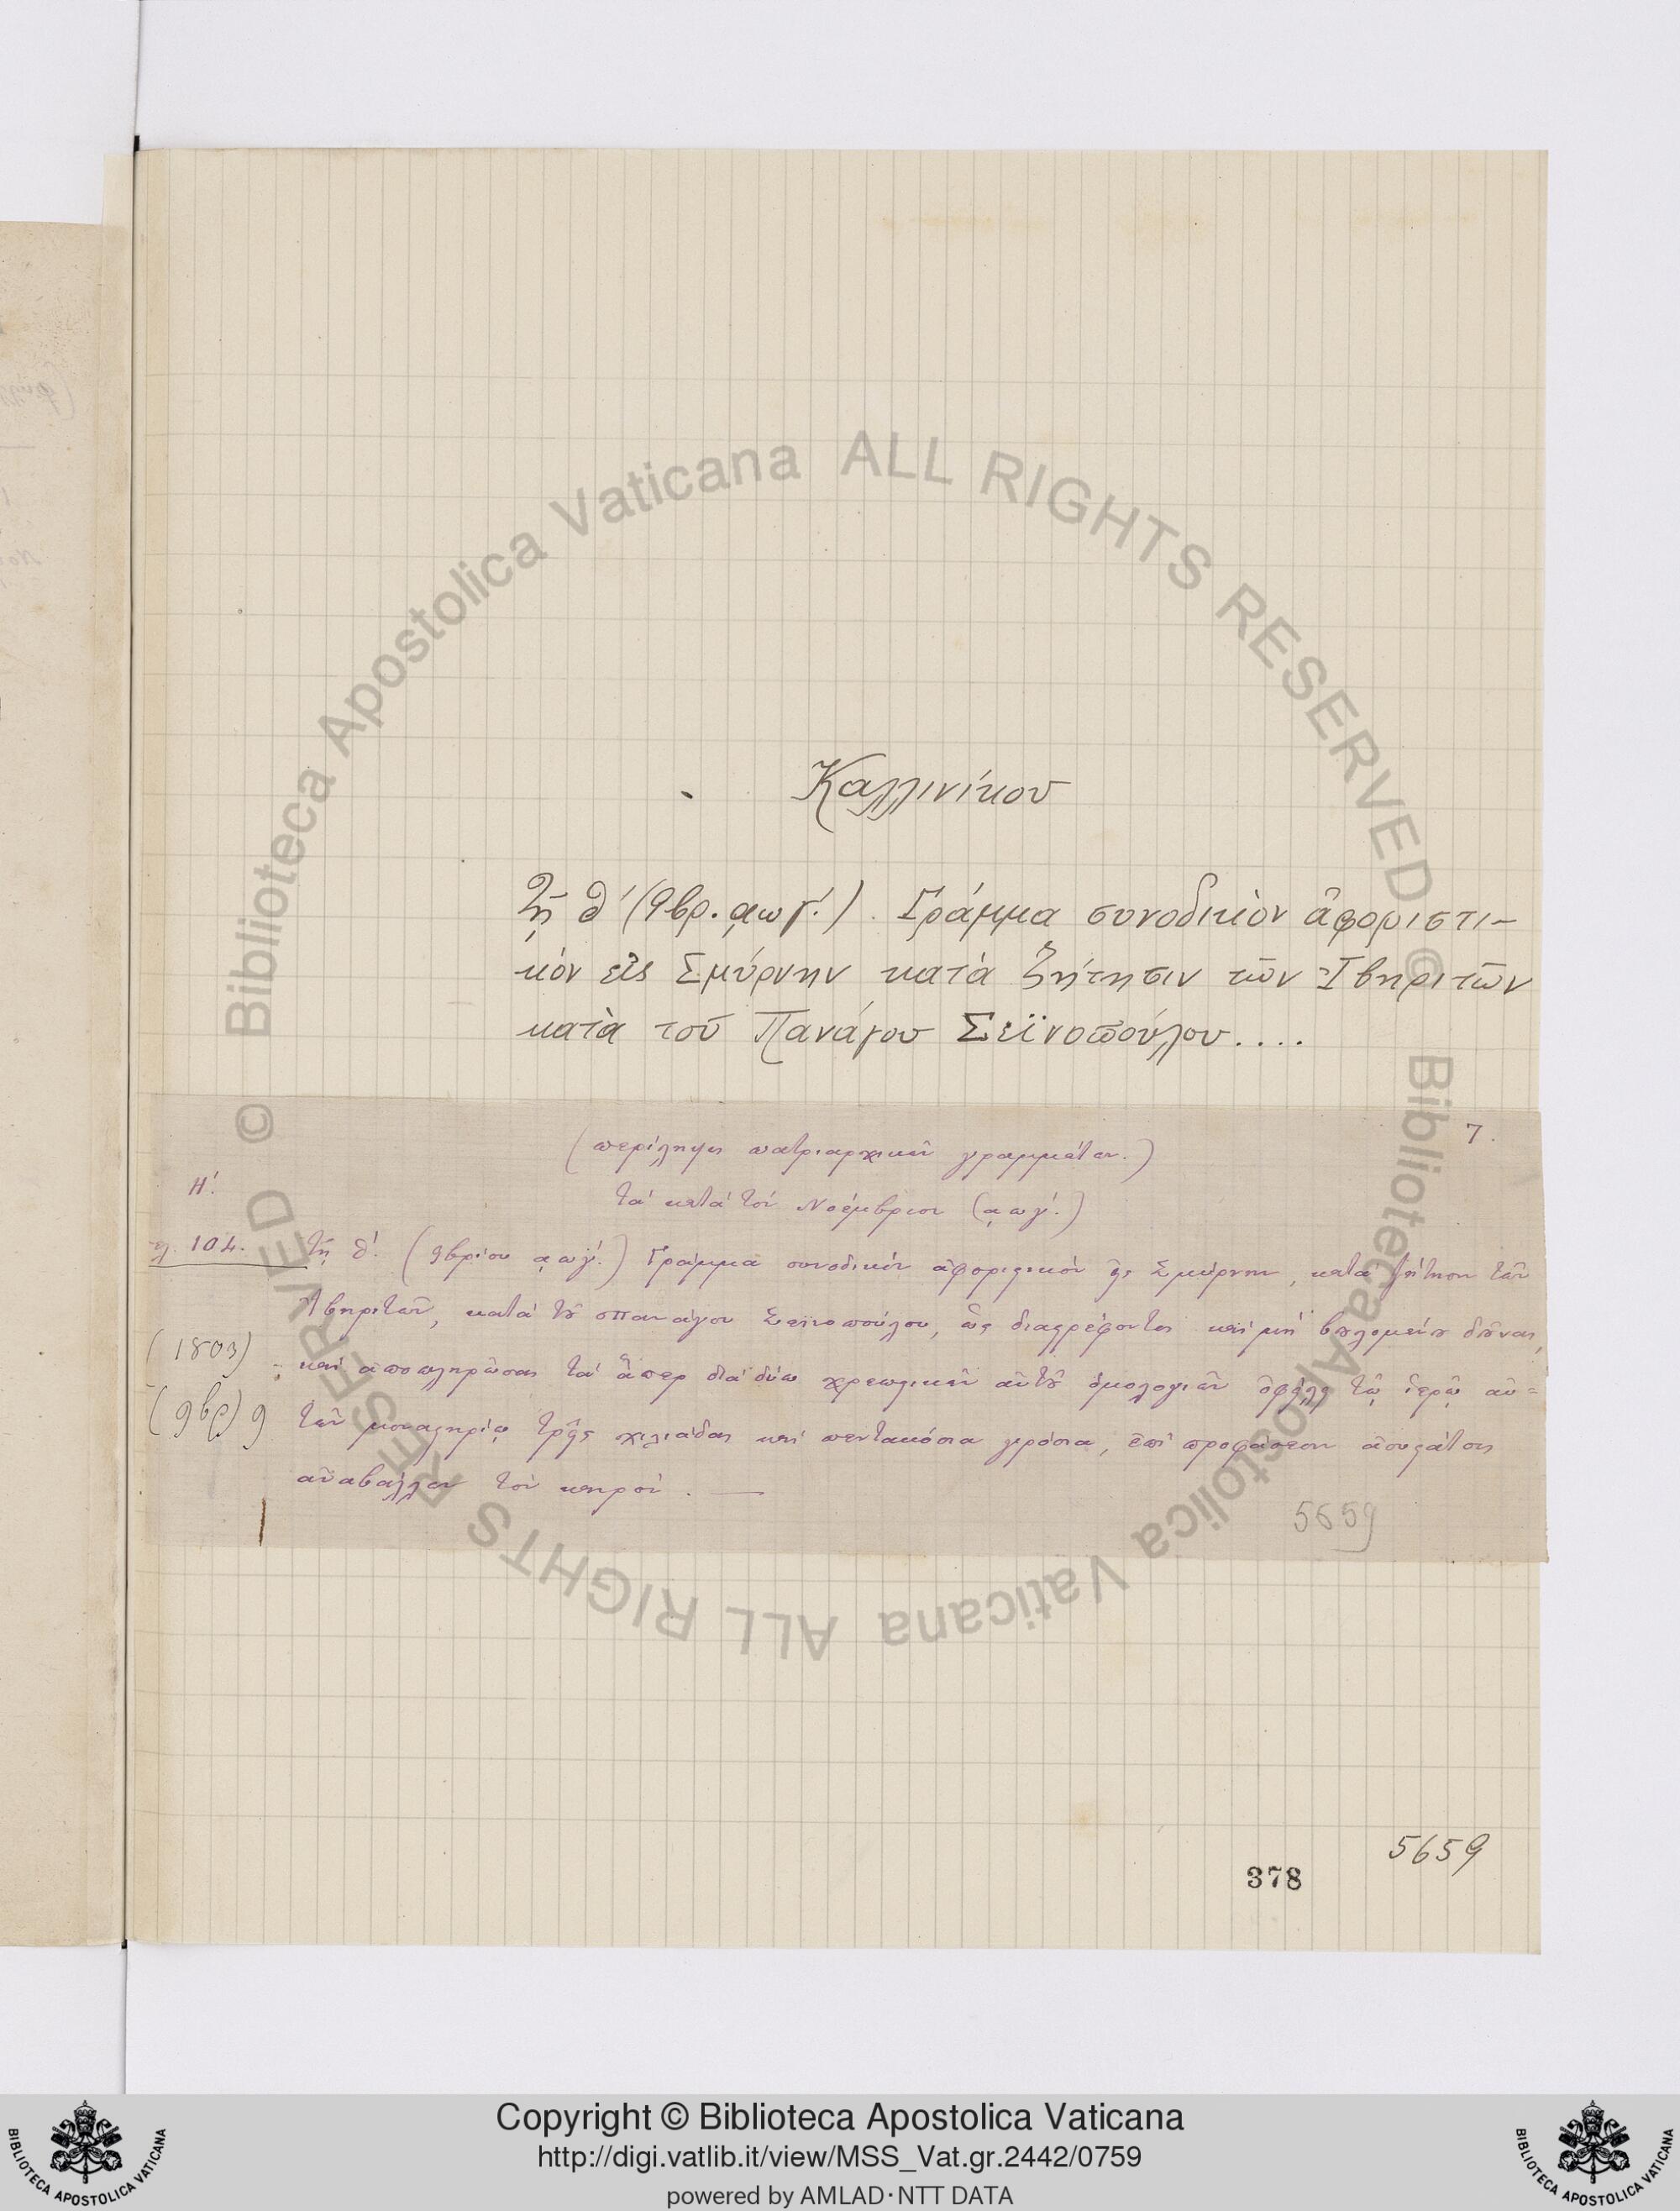 Καλλινίκου
Τῇ θ΄ (9βρ. ͵αωγ΄.) Γράμμα συνοδικὸν ἀφοριστι-
κὸν εἰς Σμύρνην κατὰ ζήτησιν τῶν Ἰβηριτῶν
κατὰ τοῦ Πανάγου Σεϊνοπούλου....
7.
(περίληψις πατριαρχικῶν γραμμάτων.)
Η΄.
τὰ κατὰ τὸν Νοέμβριον (͵αωγ΄.)
104. τῇ θ΄. (9βρίου ͵αωγ΄.) Γράμμα συνοδικὸν ἀφοριστικὸν εἰς Σμύρνην, κατὰ ζήτησιν τῶν
Ἰβηριτῶν, κατὰ τοῦ Πανάγου Σεϊνοπούλου, ὡς διαστρέφοντος καὶ μὴ βουλομένου δοῦναι,
(1803) καὶ ἀποπληρῶσαι τὰ ἅπερ διὰ δύω χρεωστικῶν αὐτοῦ ὁμολογιῶν ὀφείλει τῷ ἱερῷ αὐ=
(9βρ) 9 τῶν μοναστηρίῳ τρεῖς χιλιάδας καὶ πεντακόσια γρόσια, ἐπὶ προφάσεσιν ἀσυστάτοις
ἀναβάλλων τὸν καιρόν. —
5659
5659
378
Biblioteca Apostolica Vaticana ALL RIGHTS RESERVED ©
Biblioteca Apostolica Vaticana ALL RIGHTS RESERVED ©
Copyright © Biblioteca Apostolica Vaticana
http://digi.vatlib.it/view/MSS_Vat.gr.2442/0759
powered by AMLAD·NTT DATA
BIBLIOTECA APOSTOLICA VATICANA
BIBLIOTECA APOSTOLICA VATICANA